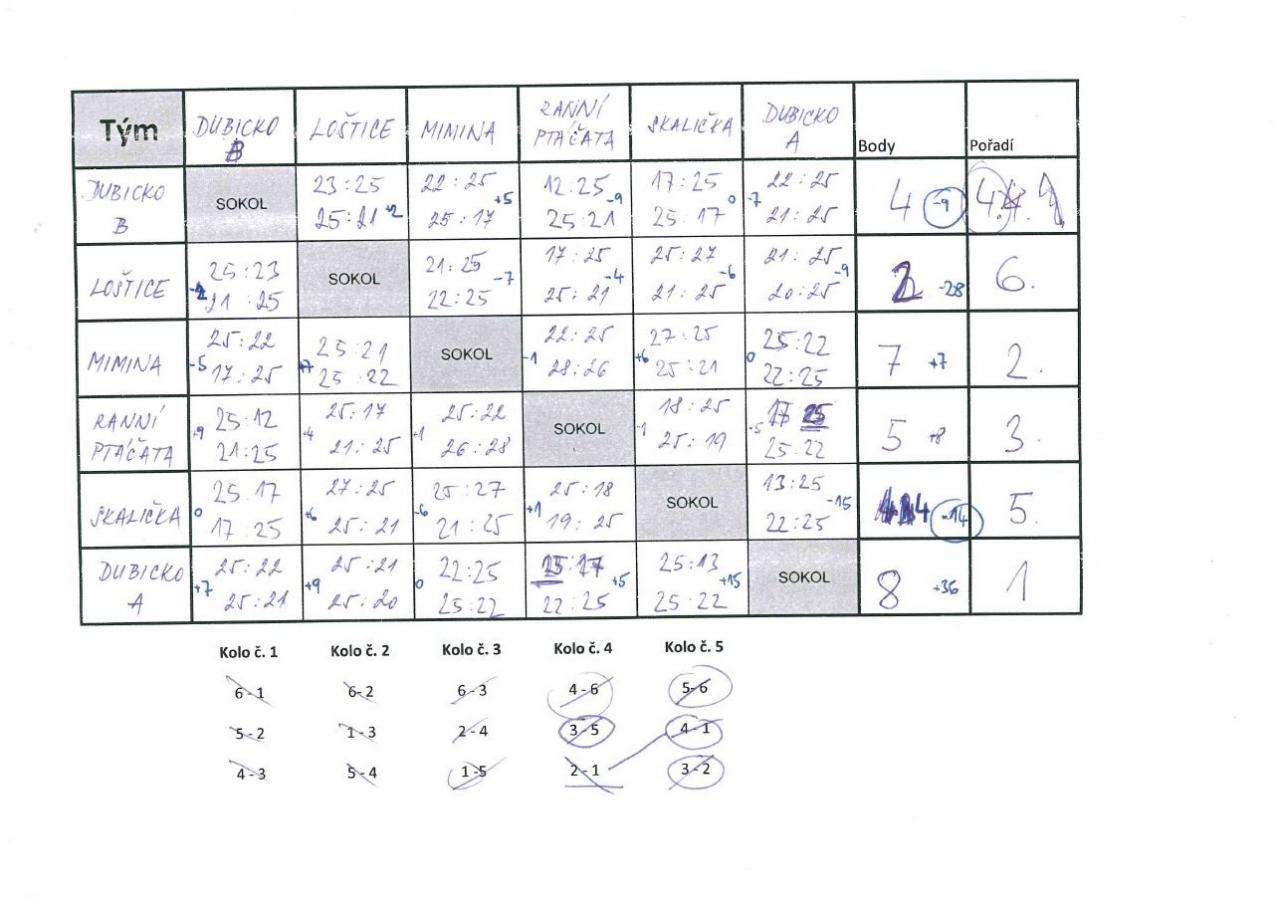 Tým DUBICKO B LOŠTICE MIMINA RANNÍ PTÁČATA SKALIČKA DUBICKO A Body Pořadí
DUBICKO B SOKOL 23:25 22:25 12:25 17:25 22:25
25:21 +2 25:17 +5 25:21 -9 25:17 0 -7 21:25 4 -9 4.
LOŠTICE 25:23 SOKOL 21:25 17:25 25:27 21:25
21:25 22:25 -7 25:21 -4 21:25 -6 20:25 -9 2 -28 6.
MIMINA 25:22 25:21 SOKOL 22:25 27:25 25:22
-5 17:25 +7 25:22 -1 28:26 +6 25:21 0 22:25 7 +7 2.
RANNÍ PTÁČATA 25:12 25:17 25:22 SOKOL 18:25 17 25
+9 21:25 -4 21:25 +1 26:28 -1 25:19 -5 25:22 5 +8 3.
SKALIČKA 25:17 27:25 25:27 25:18 SOKOL 13:25
0 17:25 +6 25:21 -6 21:25 +1 19:25 22:25 -15 4 -14 5.
DUBICKO A 25:22 25:21 22:25 25:17 25:13 SOKOL
+7 25:21 +9 25:20 0 25:22 22:25 +5 25:22 +15 8 +36 1
Kolo č. 1 Kolo č. 2 Kolo č. 3 Kolo č. 4 Kolo č. 5
6-1 6-2 6-3 4-6 5-6
5-2 1-3 2-4 3-5 4-1
4-3 5-4 1-5 2-1 3-2